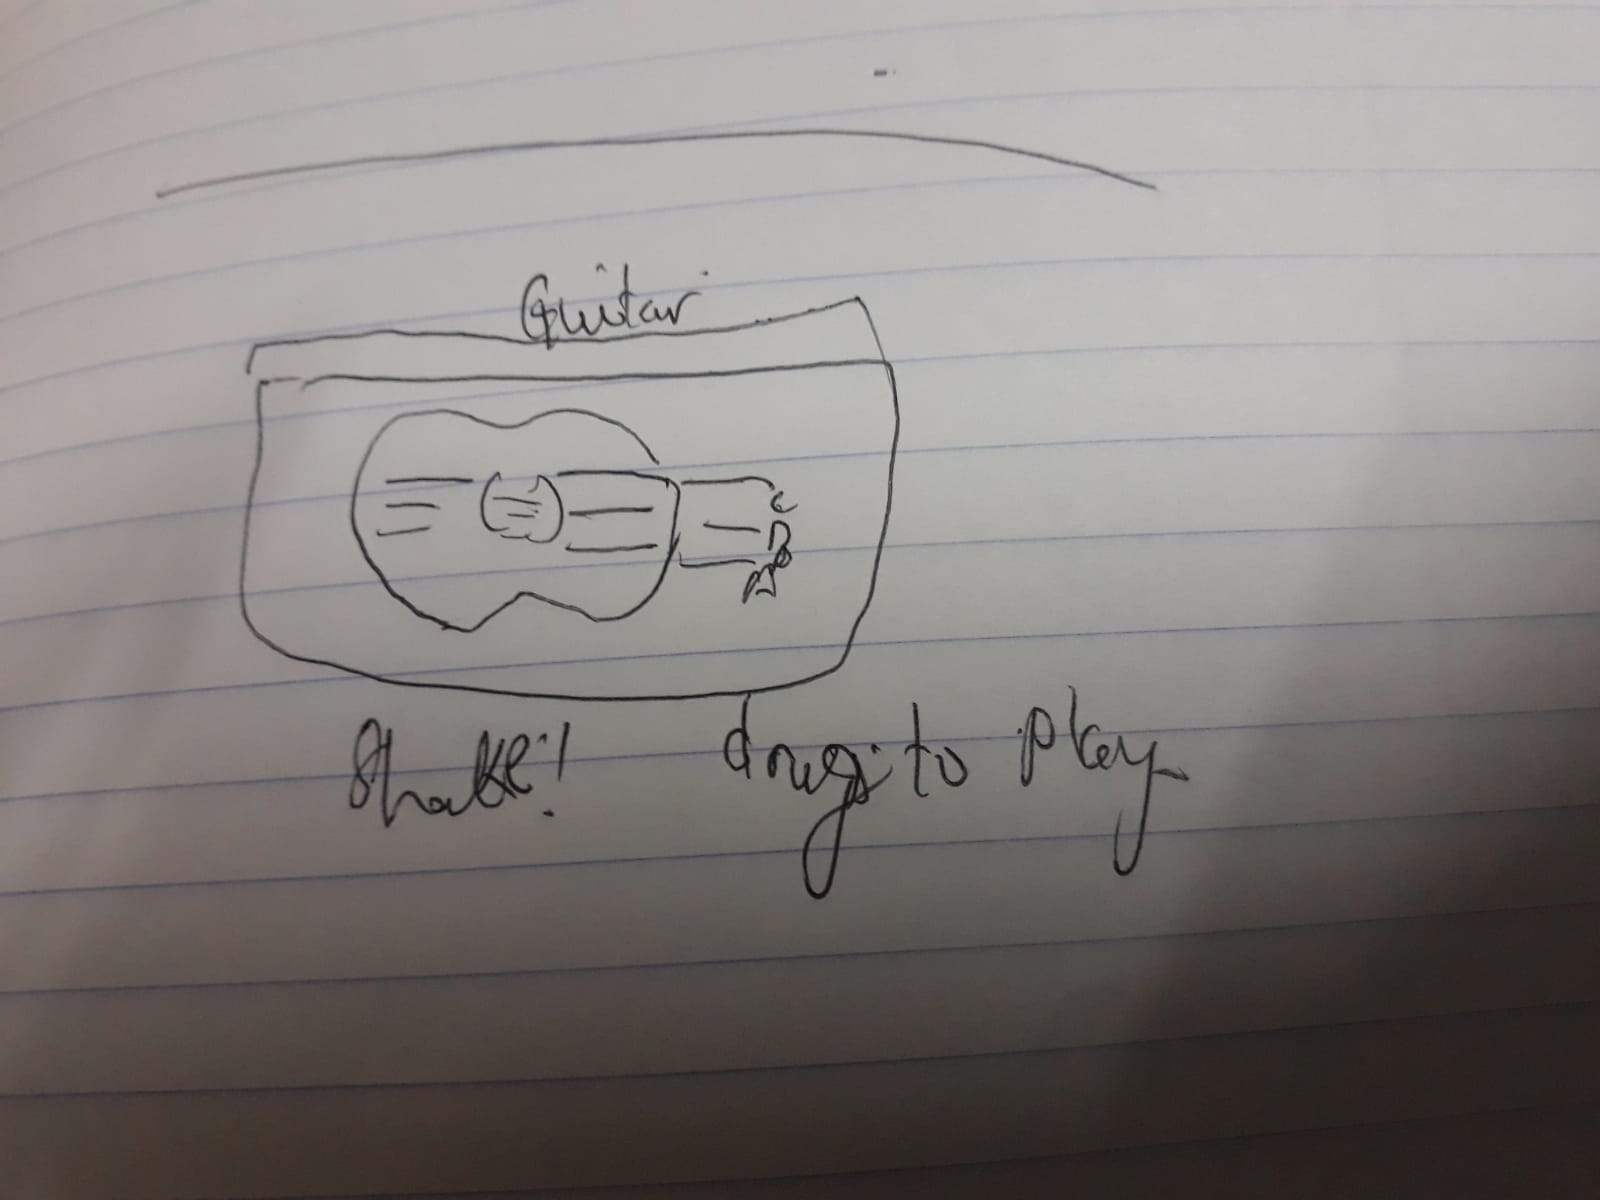 Guitar
C
D
A
Shake! drag to play